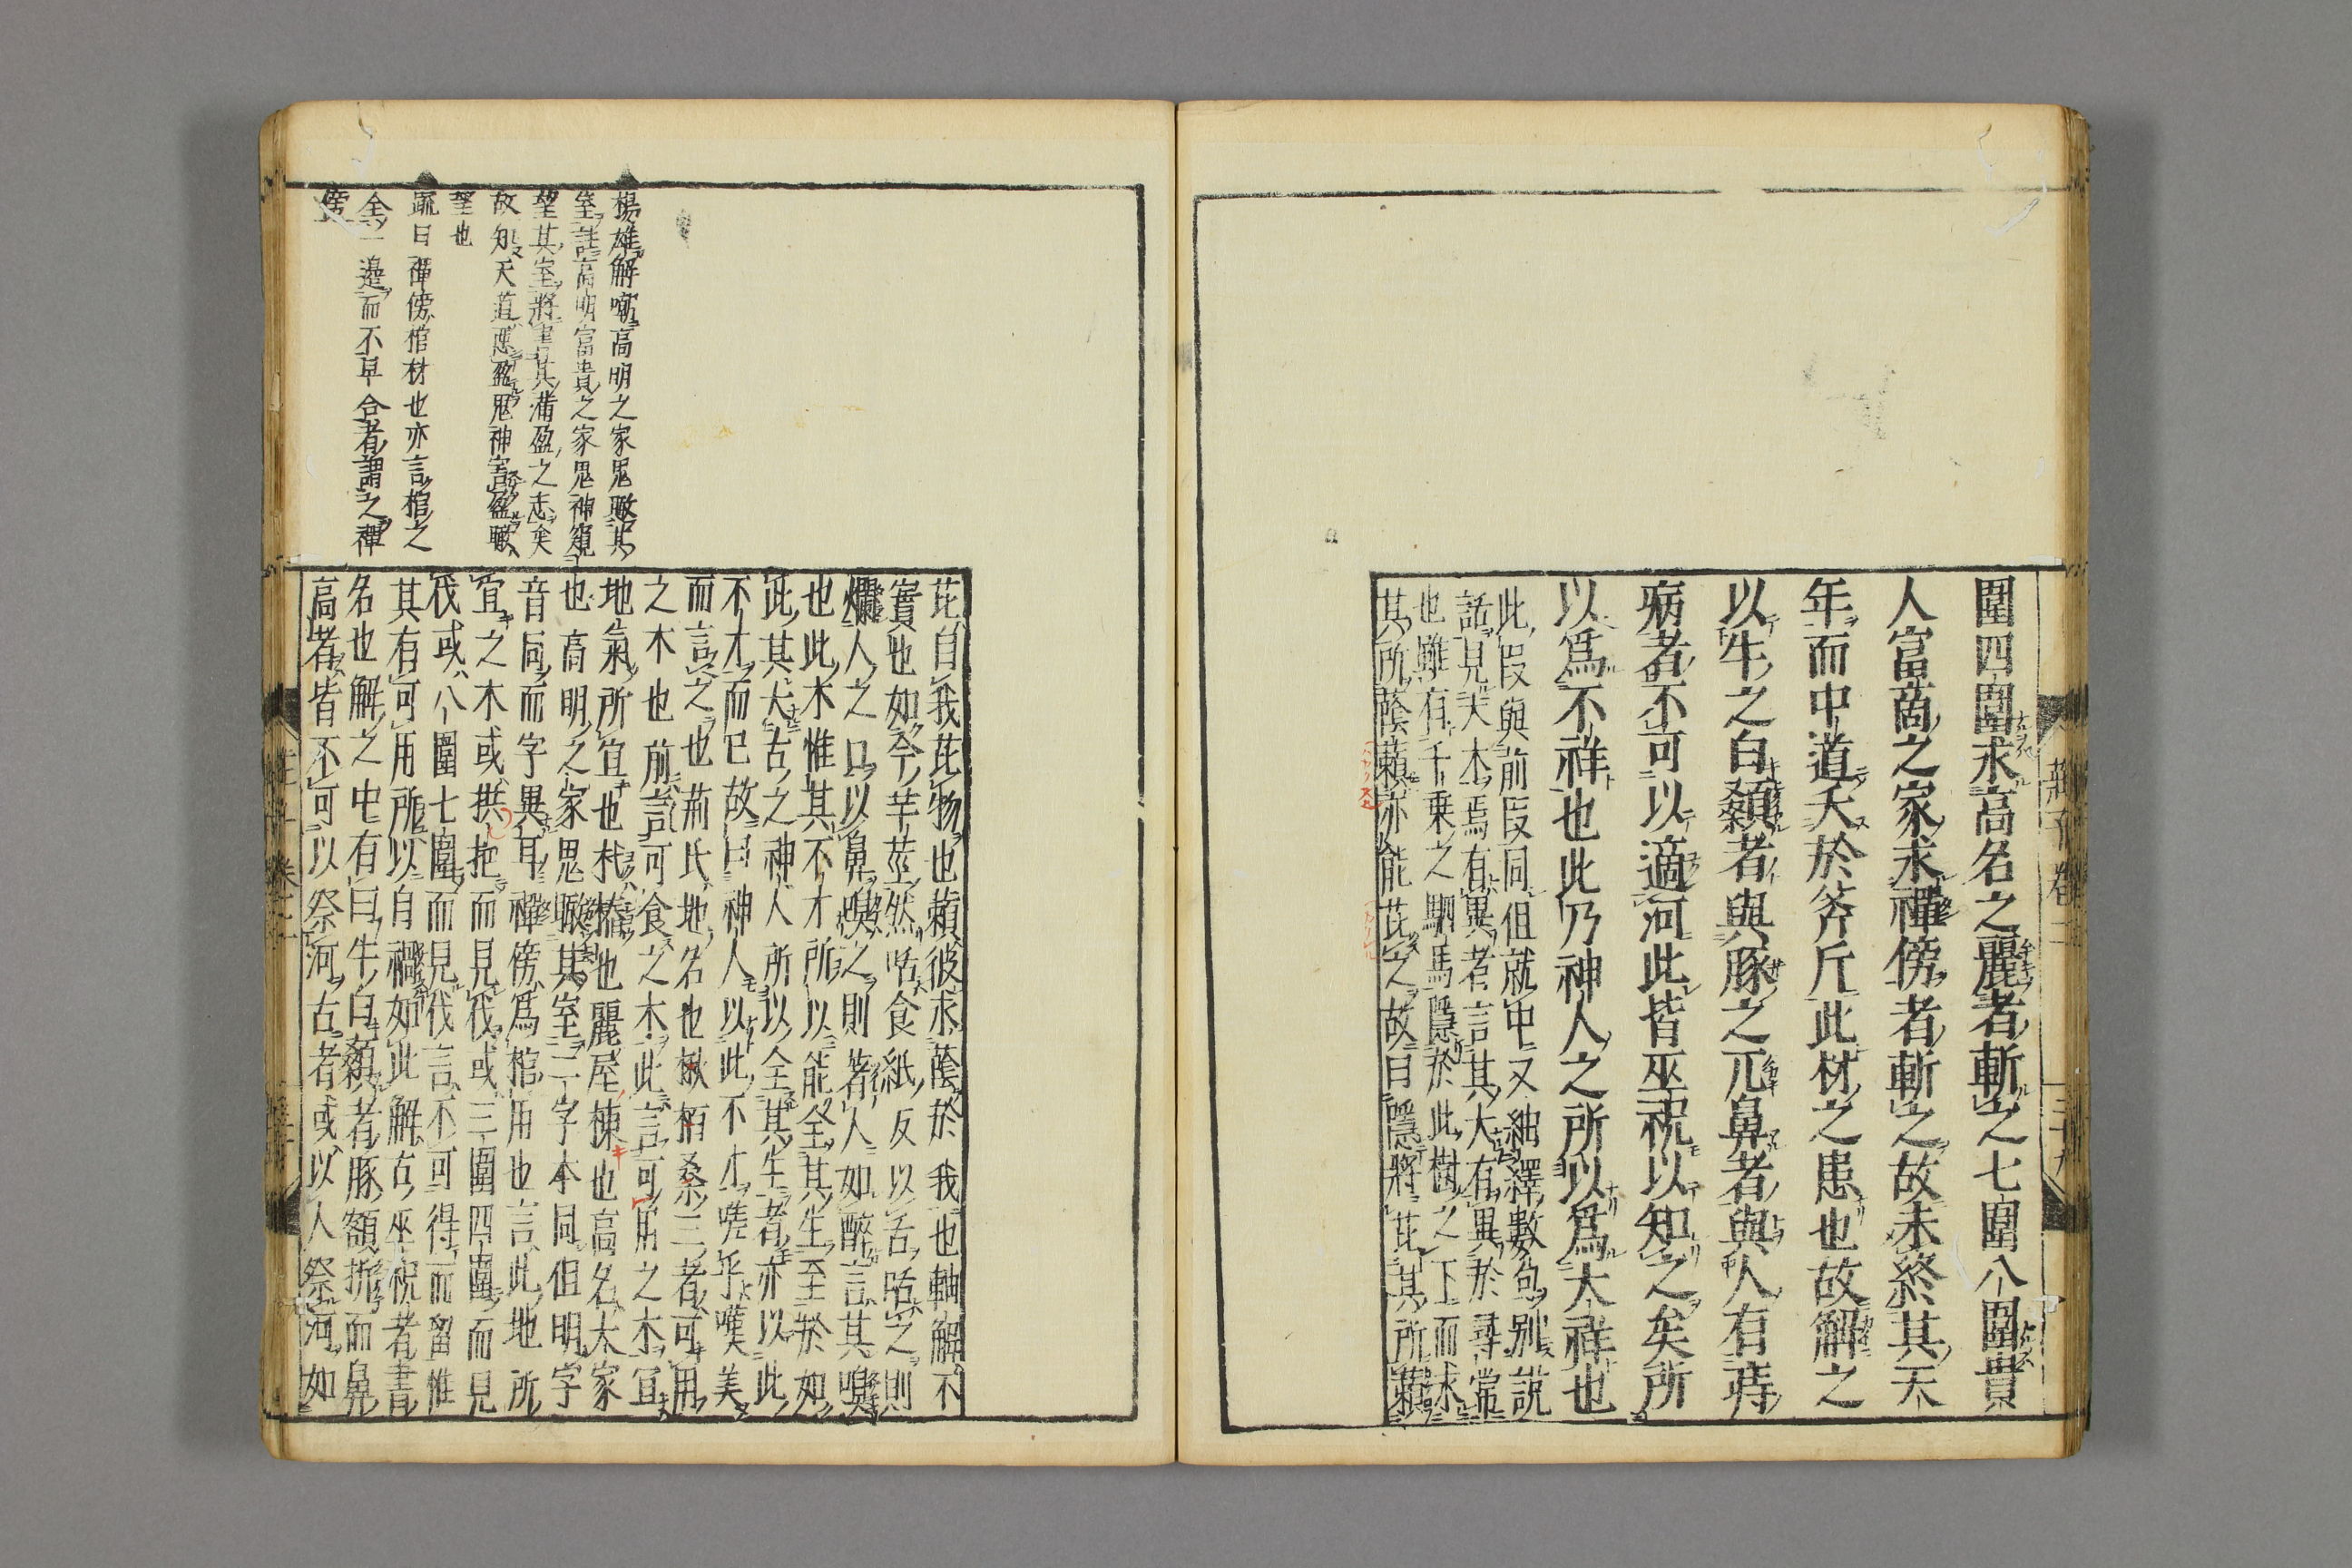 圍四圍求高名之麗者斬之七圍八圍貴
人富商之家求禪傍者斬之故未終其天
年而中道夭於斧斤此材之患也故解之
以牛之白顙者與豚之亢鼻者與人有痔
病者不可以適河此皆巫祝以知之矣所
以爲不祥也此乃神人之所以爲大祥也
此叚與前叚同但就中又紬繹數句別說
話見大木焉有異者言其大有異於尋常
也雖有千乗之駟馬隱於此樹之下而求
其所蔭藾亦能芘之故曰隱將芘其所藾
芘自我芘物也藾彼求蔭於我也軸解不
實也如今芋莖然咶食紙反以舌咶之則
爛人之口以鼻嗅之則著人如醉言其嗅
也此木惟其不才所以能全其生至於如
此其大古之神人所以全其生者亦以此
不才而已故曰神人以此不才嗟乎嘆美
而言之也荊氏地名也楸栢桑三者可用
之木也前言可食之木此言可用之木宜
地氣所宜也杙橛也麗屋棟也高名大家
也高明之家鬼瞰其室二字本同但明字
音同而字異耳禪傍爲棺用也言此地所
宜之木或拱把而見伐或三圍四圍而見
伐或八圍七圍而見伐言不可得而留惟
其有可用所以自禍如此解古巫祝者書
名也解之中有曰牛白顙者豚額折而鼻
高者皆不可以祭河古者或以人祭河如
楊雄解嘲高明之家鬼瞰其
室註高明富貴之家鬼神窺
望其室將害其滿盈之志矣
故知天道惡盈鬼神害盈瞰
望也
疏曰禪傍棺材也亦言棺之
全一邊而不早合者謂之禪
傍
莊子卷二
三十九